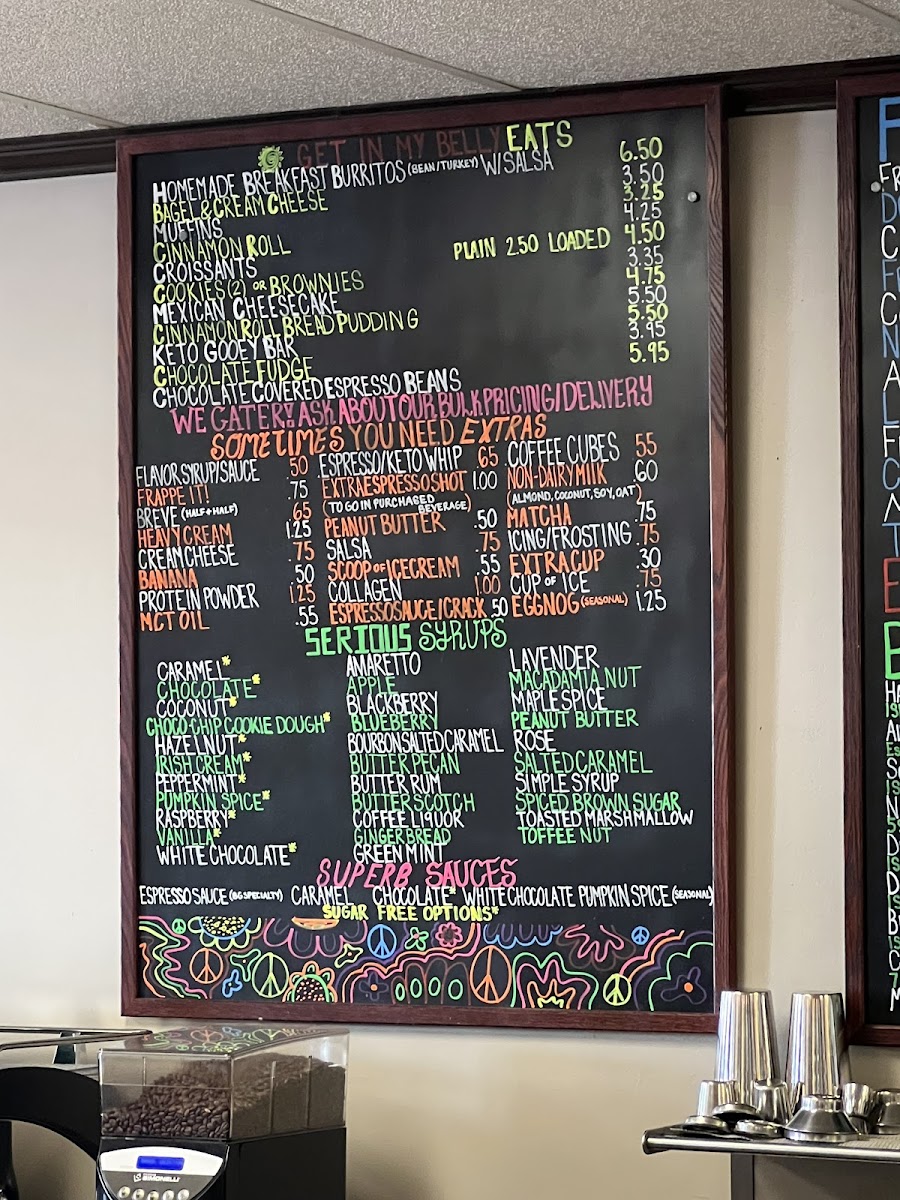 GET IN MY BELLY EATS
HOMEMADE BREAKFAST BURRITOS (BEAN/TURKEY) W/SALSA 6.50
BAGEL & CREAM CHEESE 3.50
MUFFINS 3.25
CINNAMON ROLL 4.25
CROISSANTS PLAIN 2.50 LOADED 4.50
COOKIES (2) OR BROWNIES 3.35
MEXICAN CHEESECAKE 4.75
CINNAMON ROLL BREAD PUDDING 5.50
KETO GOOEY BAR 5.50
CHOCOLATE FUDGE 3.95
CHOCOLATE COVERED ESPRESSO BEANS 5.95
WE CATER! ASK ABOUT OUR BULK PRICING/DELIVERY
SOMETIMES YOU NEED EXTRAS
FLAVOR SYRUP/SAUCE .50
FRAPPE IT! .75
BREVE (HALF+HALF) .65
HEAVY CREAM 1.25
CREAM CHEESE .75
BANANA .50
PROTEIN POWDER 1.25
MCT OIL .55
ESPRESSO/KETO WHIP .65
EXTRA ESPRESSO SHOT 1.00
(TO GO IN PURCHASED BEVERAGE)
PEANUT BUTTER .50
SALSA .75
SCOOP OF ICE CREAM .55
COLLAGEN 1.00
ESPRESSO SAUCE/CRACK .50
COFFEE CUBES .55
NON-DAIRY MILK .60
(ALMOND, COCONUT, SOY, OAT)
MATCHA .75
ICING/FROSTING .75
EXTRA CUP .30
CUP OF ICE .75
EGGNOG (SEASONAL) 1.25
SERIOUS SYRUPS
CARAMEL*
CHOCOLATE*
COCONUT*
CHOCO-CHIP COOKIE DOUGH*
HAZELNUT*
IRISH CREAM*
PEPPERMINT*
PUMPKIN SPICE*
RASPBERRY*
VANILLA*
WHITE CHOCOLATE*
AMARETTO
APPLE
BLACKBERRY
BLUEBERRY
BOURBON SALTED CARAMEL
BUTTER PECAN
BUTTER RUM
BUTTERSCOTCH
COFFEE LIQUOR
GINGERBREAD
GREEN MINT
LAVENDER
MACADAMIA NUT
MAPLE SPICE
PEANUT BUTTER
ROSE
SALTED CARAMEL
SIMPLE SYRUP
SPICED BROWN SUGAR
TOASTED MARSHMALLOW
TOFFEE NUT
SUPERB SAUCES
ESPRESSO SAUCE (BG SPECIALTY) CARAMEL CHOCOLATE* WHITE CHOCOLATE PUMPKIN SPICE (SEASONAL)
SUGAR FREE OPTIONS*
SIMONELLI